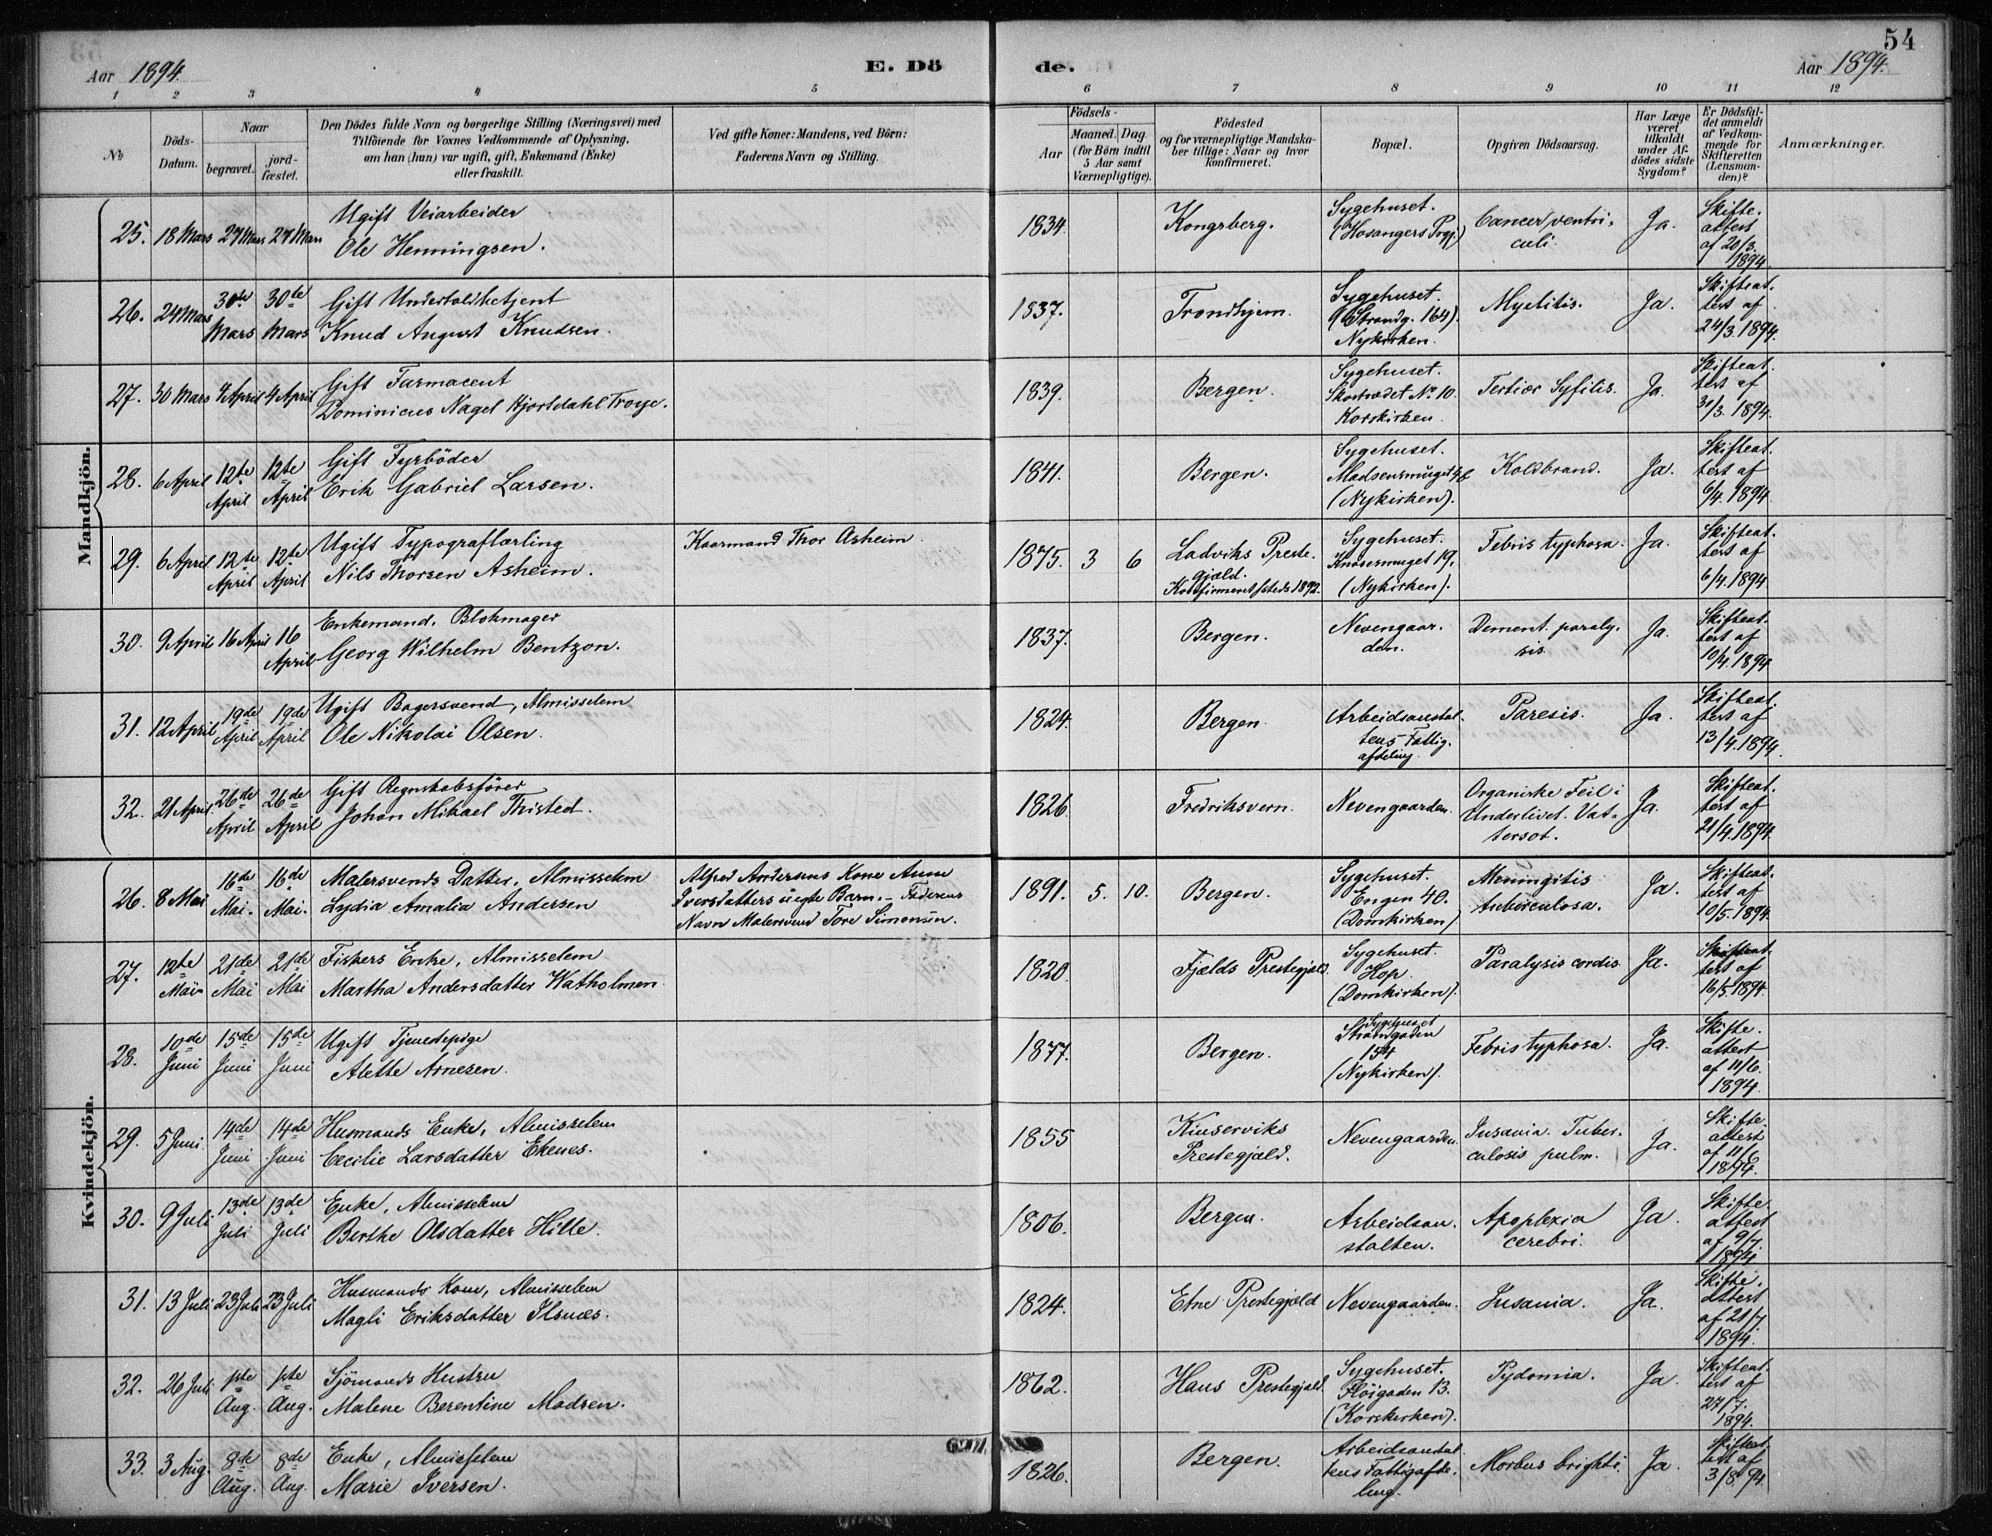 54
Aar 1894.
E. Dö
de.
Aar 1894.
1 2 3 4 5 6 7 8 9 10 11 12
№
Döds-
Datum.
Naar
begravet.
jord-
fæstet.
Den Dödes fulde Navn og borgerlige Stilling (Næringsvei) med
Tilföiende for Voxnes Vedkommende af Oplysning,
om han (hun) var ugift, gift, Enkemand (Enke)
eller fraskilt.
Ved gifte Koner: Mandens, ved Börn:
Faderens Navn og Stilling.
Födsels-
Aar
Maaned. Dag.
(for Börn indtil
5 Aar samt
Værnepligtige).
Födested
og for værnepligtige Mandska-
ber tillige: Naar og hvor
konfirmeret.
Bopæl.
Opgiven Dödsaarsag.
Har Læge
været
tilkaldt
under Af-
dödes sidste
Sygdom?
Er Dödsfal-
det anmeldt
af Vedkom-
mende for
Skifteretten
(Lensman-
den)?
Anmærkninger.
Mandkjön.
25. 18 Mars 27 Mars 27 Mars
Ugift Veiarbeider
Ole Henningsen.
1834.
Kongsberg.
Sygehuset.
(Hosangers Prgj.)
Cancer ventri-
culi.
Ja.
Skifte-
attest
af 20/3.
1894
26. 24 Mars 30te Mars 30te Mars
Gift Undertoldbetjent
Knud August Knudsen.
1837.
Trondhjem.
Sygehuset.
(Strandg. 164).
Nykirken.
Myelitis.
Ja.
Skifteat-
test af
24/3. 1894.
27. 30 Mars 4 April 4 April
Gift Farmaceut
Dominicus Nagel Hjortdahl Troye.
1839.
Bergen.
Sygehuset.
Skostrædet No 10.
Korskirken
Tertiær Syfilis.
Ja.
Skifteat-
test af
31/3. 1894.
28. 6 April 12te April 12te April
Gift Fyrböder
Erik Gabriel Larsen.
1841.
Bergen.
Sygehuset.
Madsensmuget 48
(Nykirken).
Koldbrand.
Ja.
Skifteat-
test af
6/4. 1894
29. 6 April 12te April 12te April
Ugift Typograflærling
Nils Thorsen Asheim.
Kaarmand Thor Asheim.
1875. 3 6
Ladviks Preste-
gjæld.
Konfirmeret steds 1892.
Sygehuset.
Knøsesmuget 19.
(Nykirken).
Febris typhosa.
Ja.
Skifteat-
test af
6/4. 1894
30. 9 April 16 April 16 April
Enkemand, Blokmager
Georg Wilhelm Bentzon.
1837.
Bergen.
Nevengaar-
den.
Dement. paraly-
sis.
Ja.
Skifteat-
test af
10/4. 1894
31. 12 April 19de April 19de April
Ugift Bagersvend, Almisselem
Ole Nikolai Olsen.
1824.
Bergen.
Arbeidsanstal-
tens Fattig-
afdeling.
Paresis.
Ja.
Skiftest-
test af
13/4. 1894.
32. 21 April. 26de April 26de April
Gift Regnskabsfører
Johan Mikael Thisted.
1826.
Fredriksvern.
Nevengaarden.
Organiske Feil i
Underlivet. Vat-
tersot.
Ja.
Skifteat-
test af
21/4. 1894.
Kvindekjön.
26. 8 Mai 16de Mai. 16de Mai.
Malersvends Datter, Almisselem
Lydia Amalia Andersen
Alfred Andersens Kone Anne
Iversdatters uegte Barn. - Faderens
Navn Malersvend Tore Simonsen.
1891. 5. 10.
Bergen.
Sygehuset.
Engen 40.
(Domkirken)
Meningitis
tuberculosa.
Ja.
Skifteat-
test af
10/5. 1894.
27. 12te Mai 21de Mai 21de Mai
Fiskers Enke, Almisselem
Martha Andersdatter Watholmen.
1820.
Fjælds Prestegjæld.
Sygehuset.
Hop.
(Domkirken).
Paralysis cordis.
Ja.
Skifteat-
test af
16/5. 1894.
28. 10de Juni 15de Juni 15de Juni
Ugift Tjenestepige
Alette Arnesen.
1877.
Bergen.
Sygehuset
Strandgaden
154
(Nykirken).
Febris typhosa.
Ja.
Skifte-
attest
af 11/6.
1894.
29. 5 Juni. 14de Juni 14de Juni
Husmands Enke, Almisselem
Cecilie Larsdatter Ekenes.
1855
Kinserviks
Prestegjæld.
Nevengaarden.
Insania. Tuber-
culosis pulm.
Ja.
Skifte-
attest
af 11/6
1894.
30. 9 Juli 13de Juli 13de Juli
Enke, Almisselem
Berthe Olsdatter Hille.
1806.
Bergen.
Arbeidsan-
stalten.
Apoplexia
cerebri.
Ja.
Skifte-
attest
af 9/7
1894.
31. 13 Juli 23 Juli 23 Juli
Husmands Kone, Almisselem
Magli Eriksdatter Ilsnæs.
1824.
Etne Prestegjæld
Nevengaarden.
Insania.
Ja.
Skifte-
attest
af 21/7
1894.
32. 26 Juli 1ste Aug. 1ste Aug.
Sjömands Hustru
Malene Berentine Madsen.
1862.
Haus Prestegjæld.
Sygehuset.
Fløigaden 13.
(Korskirken).
Pydomia.
Ja.
Skifteat-
test af
27/7.
1894.
33. 3 Aug. 8de Aug. 8de Aug.
Enke, Almisselem
Marie Iversen.
1826.
Bergen.
Arbeidsanstal-
tens Fattigafde-
ling.
Morbus brighti.
Ja.
Skifteat-
test af
3/8. 94.